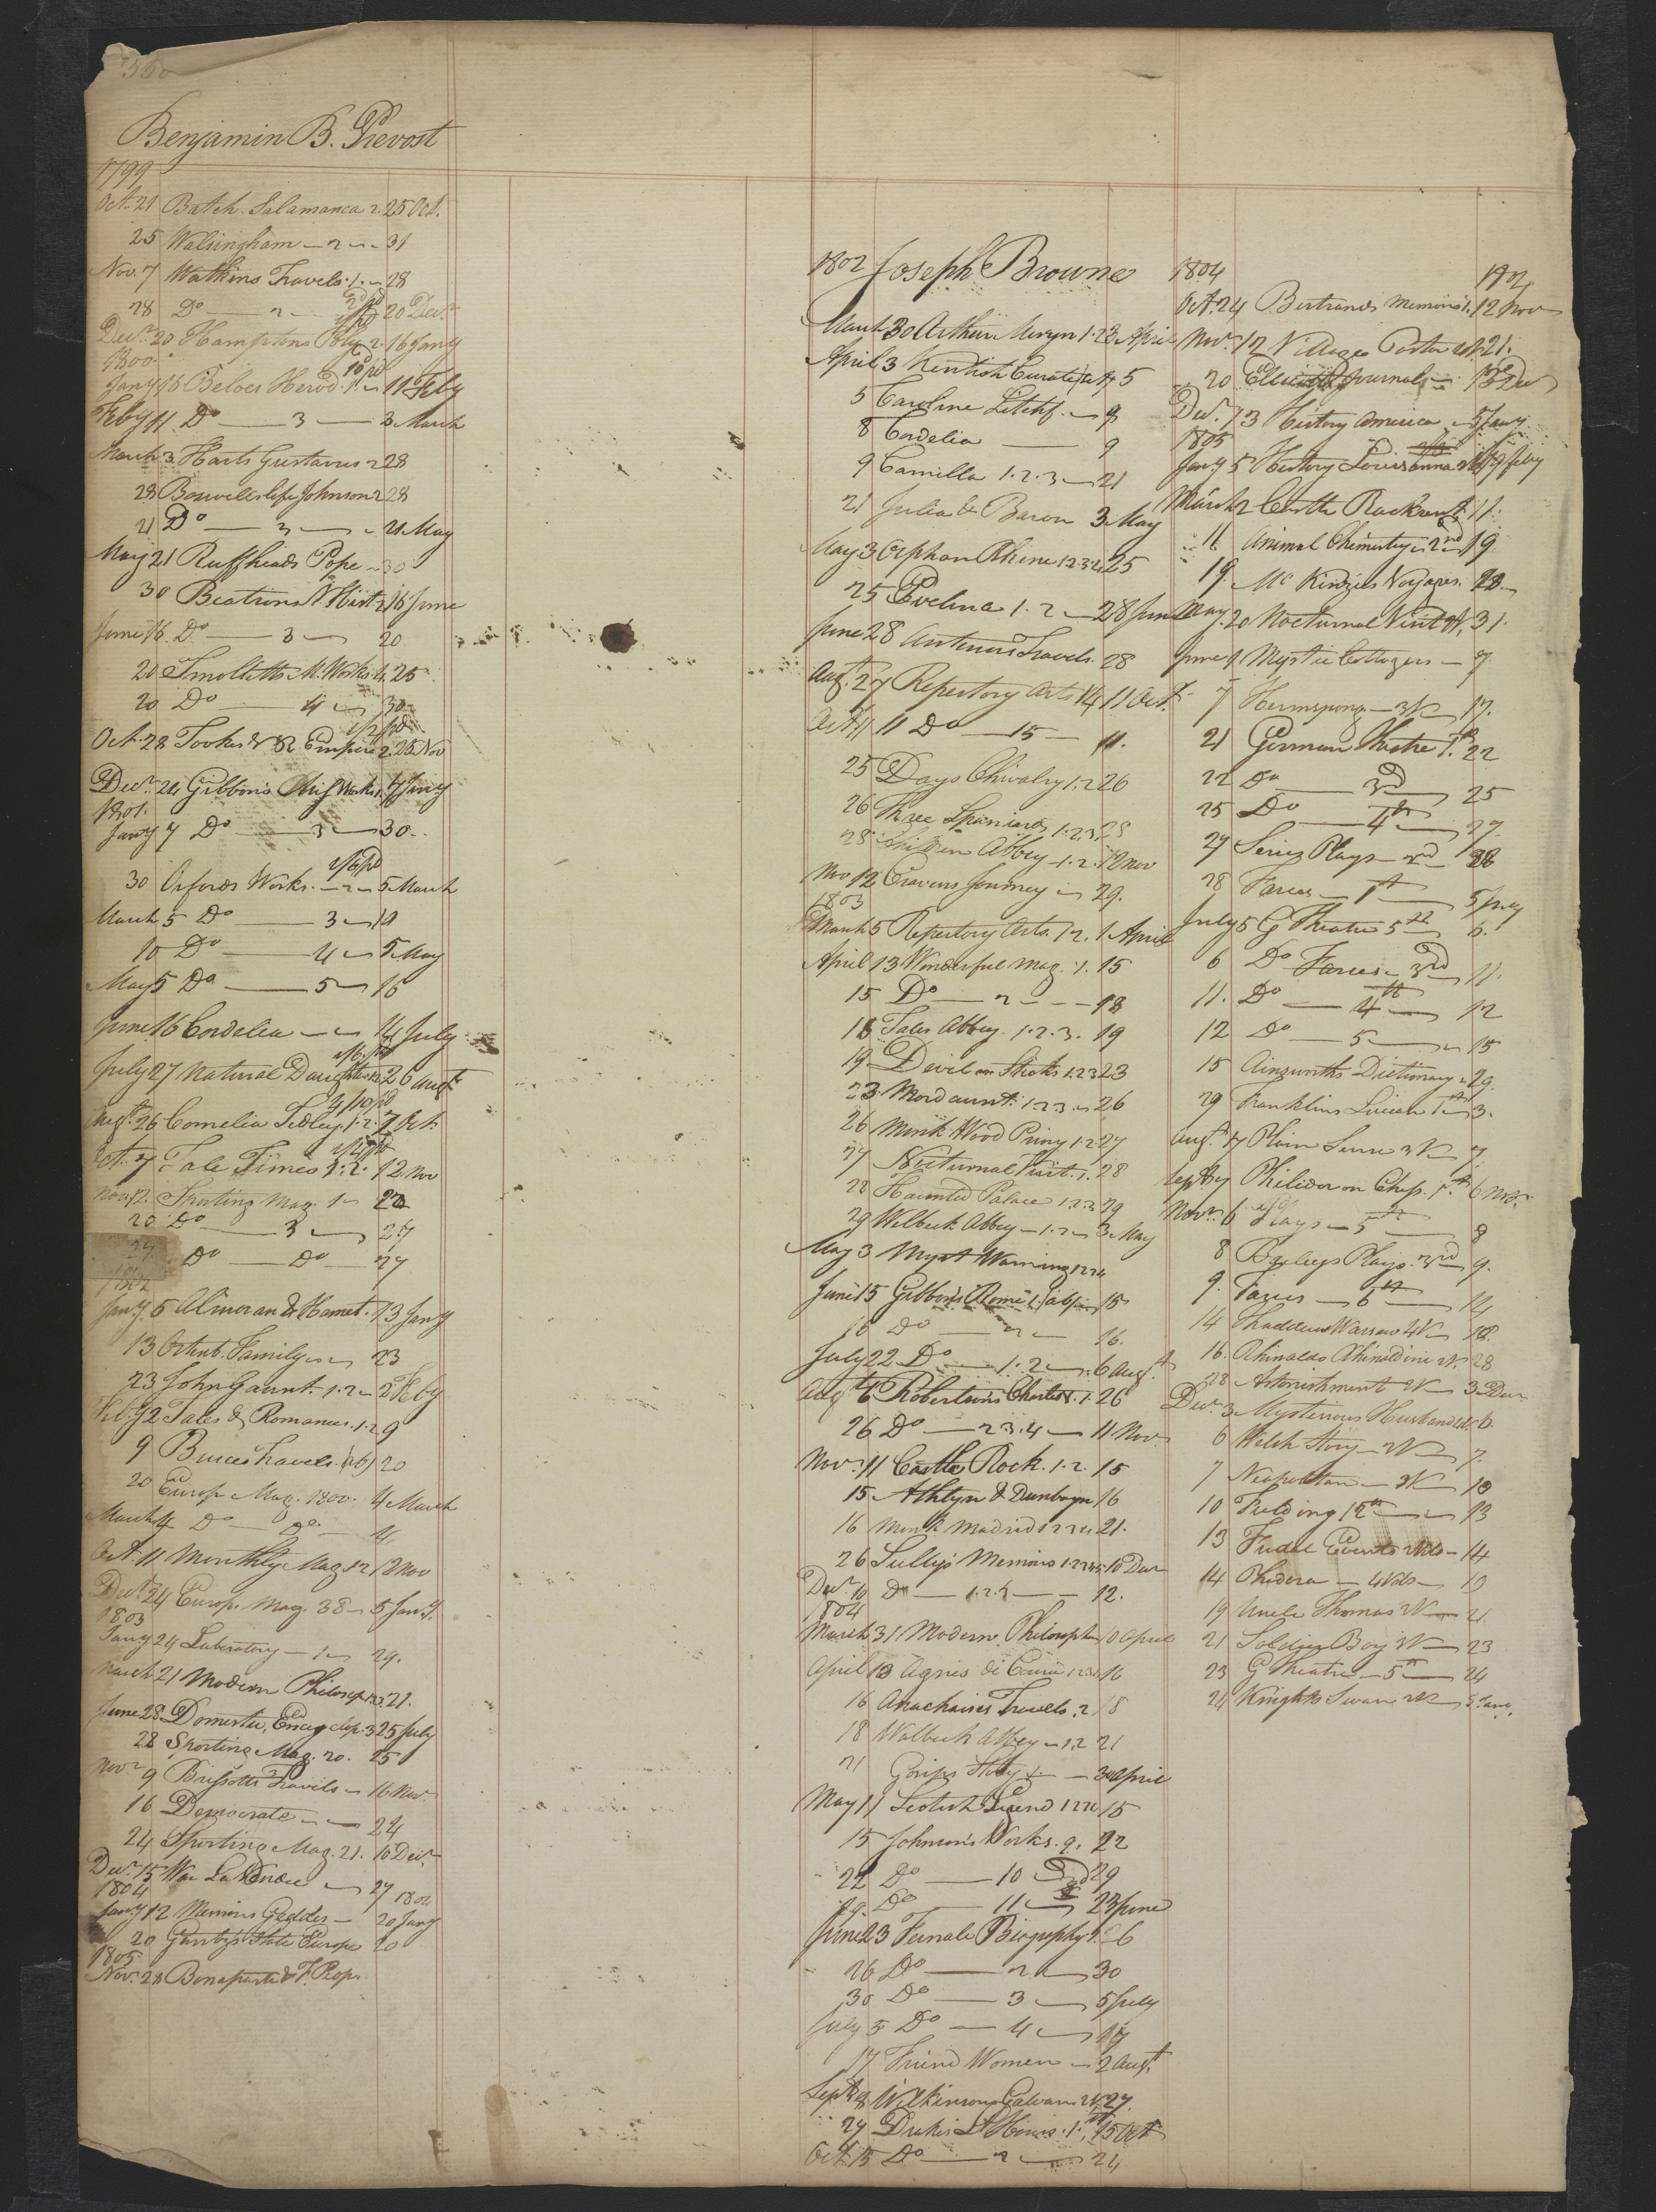 Benjamin B. Prevost
1799
Oct. 21 Batch. Salamanca 2. 25 Oct.
25 Walsingham — 2 — 31
Nov. 7 Watkins Travels. 1. — 28
28 Do — 2 — 20 Decr.
Decr. 20 Hamptons Poly. 2. 16 Jany
1800
Jany 16 Beloes Herod. 1. — 11 Feby
Feby 11 Do — 3 — 3 March
March 3 Harts Gustavus 2 28
28 Boswells life Johnson 2 28
21 Do — 3 — 21 May
May 21 Ruffheads Pope — 30
30 Beatsons N. Hist. 2 16 June
June 16 Do — 3 — 20
20 Smolletts M. Works 1. 25
20 Do — 4 — 30
Oct. 28 Tookes R Empire 2. 25 Nov
Decr. 24 Gibbons Miss Works 1. 7 Jany
1801.
Jany 7 Do — 3 — 30
30 Orfords Works. — 2 — 5 March
March 5 Do — 3 — 10
10 Do — 4 — 5 May
May 5 Do — 5 — 16
June 16 Cordelia — 14 July
July 27 Natural Daughter 1.2. 26 Augt
Augt. 26 Cornelia Sedley. 1.2. 7 Oct.
Oct. 7 Tale Times 1.2. 12 Nov
Nov. 12. Sporting Mag. 1 — 20
20 Do — 3 — 27
27 Do — Do — 27
1802
Jany. 6 Almoran & Hamet. 13 Jany
13 Ortenb. Family — 23
23 John Gaunt. 1.2 — 2 Feby
Feby 2 Tales & Romances. 1.2 9
9 Bruces Travels. (16) 20
20 Europ. Mag. 1800. 4 March
March 4 Do — Do — 4
Oct. 11 Monthly Mag. 12 12 Nov
Decr. 24 Europ. Mag. 38 — 5 Jany.
1803
Jany 24 Laboratory — 1 — 29.
March 21 Modern Philosop. 1.2.3. 21.
June 28 Domestic Encyclop. 3 25 July
28 Sporting Mag. 20. 25
Novr 9 Brissotts Travels — 16 Nov
16 Democrate — 24
24 Sporting Mag. 21. 10 Decr
Decr. 15 War La Vendee — 27
1804 1804
Jany 12 Memoirs Geddes — 20 Jany
20 Gentz's State Europe 20
1805
Nov. 28 Bonaparte & F. Peop.
1802 Joseph Browne
March 30 Arthur Mervyn 1. 2 3 April
April 3 Kentish Curate 5
5 Caroline Litchf. — 8
8 Cordelia — 9
9 Camilla 1.2.3 — 21
21 Julia de Baron 3 May
May 3 Orphan Rhine 1.2.3.4. 25
25 Evelina 1. 2 — 28 June
June 28 Antenors Travels. 28
Aug. 27 Repertory Arts 14 11 Oct.
Oct. 11 Do — 15 — 11.
25 Days Chivalry 1.2 26
26 Three Spaniards 1.2.3 28
28 Abbey — 1. 2. 12 Nov
Nov 12 Cravens Journey — 29.
1803
March 5 Repertory Arts. 12. 1 April
April 13 Wonderful Mag. 1. 15
15 Do — 2 — 18
18 Tales Abbey. 1.2.3. 19
19 Devil on Sticks 1.2.3 23
23 Mordaunt. 1.2.3 — 26
26 Mink Wood Priory 1.2 27
27 Nocturnal Visit. 1. 28
28 Haunted Palace 1.2.3 29
29 Welbeck Abbey — 1.2 — 3 May
May 3 Myst Warning 1.2.3.4
June 15 Gibbons Rome 1. — 15
16 Do — 2 — 16.
July 22 Do — 1.2 — 6 Augt.
Augt 6 Robertsons Charles V. 1. 26
26 Do — 2.3.4 — 11 Nov.
Nov. 11 Castle Rock. 1. 2. 15
15 Athlyn & Dunbayn 16
16 Monk Madrid 1.2.3.4 21.
26 Sully's Memoirs 1.2.3.4.5. 10 Decr
Decr. 10 Do — 1.2.5 — 12.
1804
March 31 Modern Philosoph 10 April
April 13 Agnes de Courci 1.2.3.4 16
16 Anacharsis Travels. 2 18
18 Walbeck Abbey — 1.2 21
21 Gossips Story — 30 April
May 11 Scotish Legend 1.2.3.4 15
15 Johnson's Works. 9. 22
22 Do — 10 — 29
29. Do — 11 — 23 June
June 23 Female Biography 1. 26
26 Do — 2 — 30
30 Do — 3 — 5 July
July 5 Do — 4 — 17
17 Friend Women — 2 Augt.
Sept. 8 Wilkinsons Galvanis 27.
27 Drakes L Hours. 1. 15 Oct
Oct. 15 Do — 2 — 24
1804 1804
Oct. 24 Bertrands Memoirs 1. 12 Nov
Nov. 12 Village Pastor 21.
20 Ellicotts Journal — 13 Dec
Decr. 13 History America — 5 Jany
1805
Jany 5 History Louisianna 19 Feby
March 2 Castle Rackrent 11.
11 Animal Chemistry — 2nd 19.
19. Mc Kinzies Voyages. 28
May. 20 Nocturnal Visit 31.
June 1 Mystic Cottagers — 7
7 Hermsprong — 3V — 17.
21 German Theatre 1st. 22
22 Do — 3d — 25
25 Do — 4th — 27.
27 Series Plays — 2nd 28
28 Farces — 1st — 5 July
July 5 G Theatre 5th 6.
6 Do Farces — 3rd 11.
11. Do — 4th — 12
12 Do — 5 — 15
15 Ainsworths Dictionary — 29.
29 Franklins Lucian 1st 3.
Augt. 17 Plain Sense 3V — 7
Sept 7 Philidor on Chess. 1. 6 Novr.
Novr. 6 Plays — 5th — 8
8 Baileys Plays. 3rd 9.
9. Farces — 6th — 14
14 Thaddeus Warsaw 4V — 18
16. Rhinaldo Rhinaldini 28
28 Astonishment 2V — 3 Decr
Decr. 3 Mysterious Husband 6
6 Welsh Story — 3V — 7.
7 Neapolitan — 3V — 10
10 Fielding 12th — 13
13 Feudal Events 2Vols — 14
14 Phedora — 4Vols — 19
19 Uncle Thomas 2V — 21.
21 Soldiers Boy 3V — 23
23 G Theatre — 5th — 24
24 Knights Swan 3V — 3 Jany.